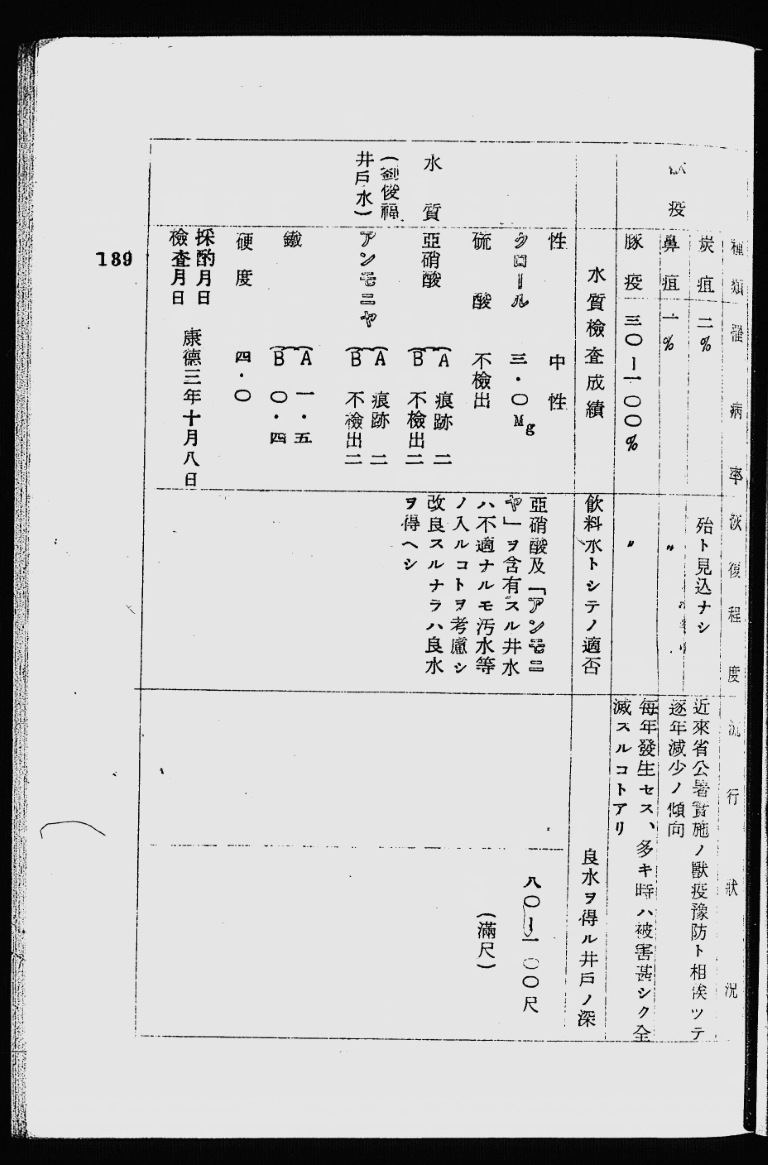 種類
罹病率
恢復程度
流行狀況
疫
炭疽
二%
殆ト見込ナシ
近來省公署實施ノ獸疫豫防ト相俟ツテ
逐年減少ノ傾向
鼻疽
一%
〃
豚疫
三〇ー一〇〇%
〃
每年發生セス、多キ時ハ被害甚シク全
滅スルコトアリ
水質檢査成績
飲料水トシテノ適否
良水ヲ得ル井戶ノ深
水質
(劉俊福
井戶水)
性
中性
クロール
三・〇Mg
硫酸
不檢出
亞硝酸
A 痕跡 二
B 不檢出 二
アンモニヤ
A 痕跡 二
B 不檢出 二
鐵
A 一・五
B 〇・四
硬度
四・〇
採酌月日
檢査月日
康德三年十月八日
亞硝酸及「アンモニ
ヤ」ヲ含有スル井水
ハ不適ナルモ汚水等
ノ入ルコトヲ考慮シ
改良スルナラハ良水
ヲ得ヘシ
八〇ー一〇〇尺
(滿尺)
189